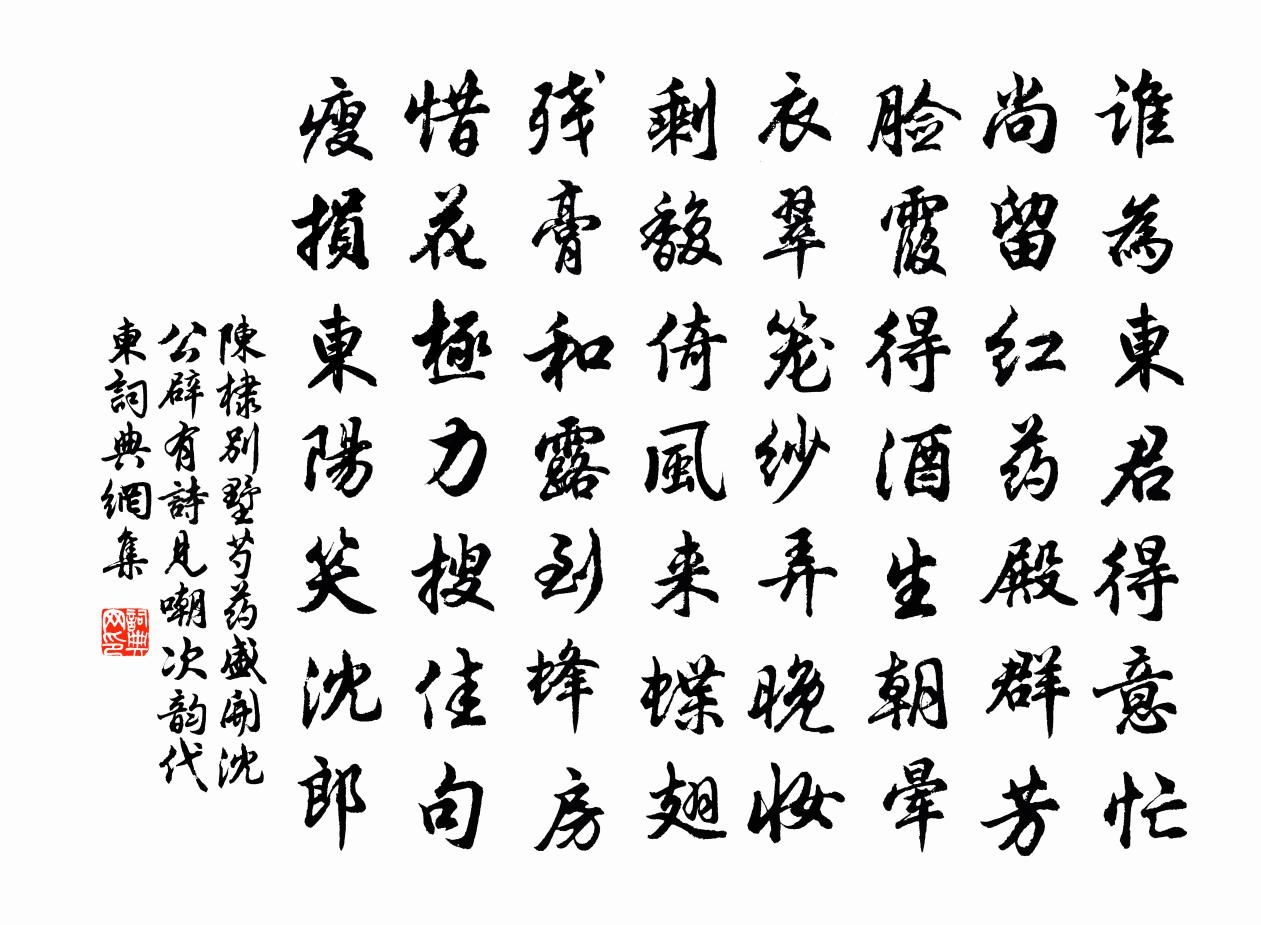 谁為東君得意忙
尚留红药殿群芳
脸霞得酒生朝暈
衣翠笼纱弄晚妆
剩馥倚風来蝶翅
残膏和露到蜂房
惜花極力搜佳句
瘦損東陽笑沈郎
陳棣别墅芍药盛開沈
公辟有詩見嘲次韵代
東詞典網集
詞典
网印